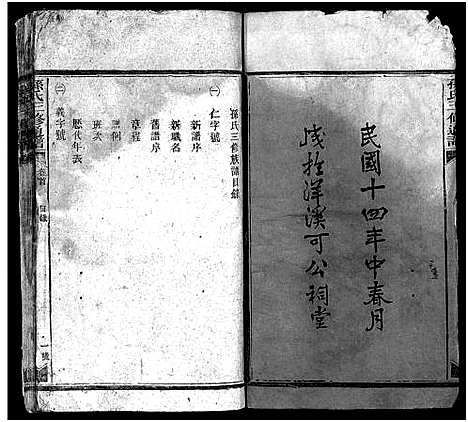 孫氏三修通譜
民國十四年中春月
成於洋溪可公祠堂
孫氏三修族譜目錄
㈠ 仁字號
新譜序
新職名
舊譜序
章程
譜例
班次
歷代年表
㈡ 義字號
孫氏三修通譜
卷首 目錄
一號